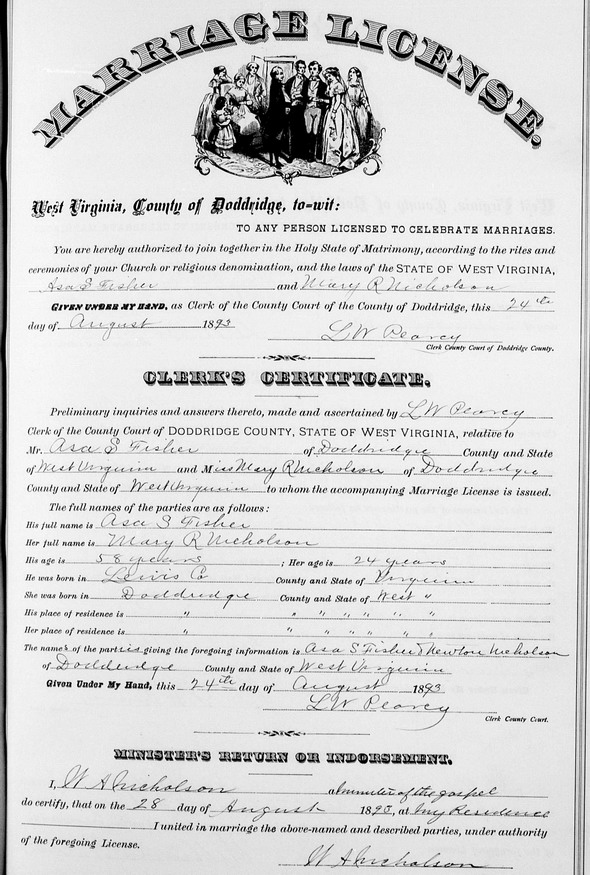 MARRIAGE LICENSE.
West Virginia, County of Doddridge, to-wit:
TO ANY PERSON LICENSED TO CELEBRATE MARRIAGES.
You are hereby authorized to join together in the Holy State of Matrimony, according to the rites and
ceremonies of your Church or religious denomination, and the laws of the STATE OF WEST VIRGINIA,
Asa S Fisher and Mary R Nicholson
GIVEN UNDER MY HAND, as Clerk of the County Court of the County of Doddridge, this 24th
day of August 1893
L W Pearcy
Clerk County Court of Doddridge County.
CLERK'S CERTIFICATE.
Preliminary inquiries and answers thereto, made and ascertained by L W Pearcy
Clerk of the County Court of DODDRIDGE COUNTY, STATE OF WEST VIRGINIA, relative to
Mr. Asa S Fisher of Doddridge County and State
of West Virginia and Miss Mary R Nicholson of Doddridge
County and State of West Virginia to whom the accompanying Marriage License is issued.
The full names of the parties are as follows:
His full name is Asa S Fisher
Her full name is Mary R Nicholson
His age is 58 years ; Her age is 24 years
He was born in Lewis Co County and State of Virginia
She was born in Doddridge County and State of West "
His place of residence is " " " " " " "
Her place of residence is " " " " " " "
The names of the parties giving the foregoing information is Asa S Fisher & Newton Nicholson
of Doddridge County and State of West Virginia
Given Under My Hand, this 24th day of August 1893
L W Pearcy
Clerk County Court.
MINISTER'S RETURN OR INDORSEMENT.
I, W A Nicholson a minister of the gospel
do certify, that on the 28 day of August 1893, at my Residence
I united in marriage the above-named and described parties, under authority
of the foregoing License.
W A Nicholson